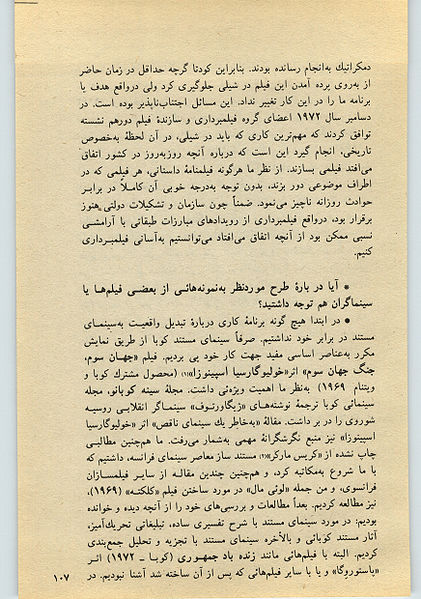 دمکراتیك به‌انجام رسانده بودند. بنابراین کودتا گرچه حداقل در زمان حاضر
از به‌روی پرده آمدن این فیلم در شیلی جلوگیری کرد ولی درواقع هدف یا
برنامه ما را در این کار تغییر نداد. این مسائل اجتناب‌ناپذیر بوده است. در
دسامبر سال ۱۹۷۲ اعضای گروه فیلمبرداری و سازندهٔ فیلم دورهم نشسته
توافق کردند که مهم‌ترین کاری که باید در شیلی، در آن لحظهٔ به‌خصوص
تاریخی، انجام گیرد این است که درباره آنچه روزبه‌روز در کشور اتفاق
می‌افتد فیلمی بسازند. از نظر ما هرگونه فیلمنامهٔ داستانی، هر فیلمی که در
اطراف موضوعی دور بزند، بدون توجه به‌درجه خوبی آن کاملاً در برابر
حوادث روزانه ناچیز می‌نمود. ضمناً چون سازمان و تشکیلات دولتی هنوز
برقرار بود، درواقع فیلمبرداری از رویدادهای مبارزات طبقاتی با آرامشی
نسبی ممکن بود از آنچه اتفاق می‌افتاد می‌توانستیم به‌آسانی فیلمبرداری
کنیم.
* آیا در بارهٔ طرح موردنظر به‌نمونه‌هائی از بعضی فیلم‌ها یا
سینماگران هم توجه داشتید؟
• در ابتدا هیچ گونه برنامهٔ کاری دربارهٔ تبدیل واقعیت به‌سینمای
مستند در برابر خود نداشتیم. صرفاً سینمای مستند کوبا از طریق نمایش
مکرر به‌عناصر اساسی مفید جهت کار خود پی بردیم. فیلم «جهان سوم،
جنگ جهان سوم» اثر«خولیوگارسیا اسپینوزا»(۱) (محصول مشترك کوبا و
ویتنام ۱۹۶۹) به‌نظر ما اهمیت ویژه‌ئی داشت. مجلهٔ سینه کوبانو، مجله
سینمائی کوبا ترجمهٔ نوشته‌های «زیگاورتوف» سینماگر انقلابی روسیه
شوروی را در برداشت. مقالهٔ «به‌خاطر یك سینمای ناقص» اثر «خولیوگارسیا
اسپینوزا» نیز منبع نگرشگرانهٔ مهمی به‌شمار می‌رفت. ما هم‌چنین مطالبی
چاپ نشده از «کریس مارکر»(۲) مستند ساز معاصر سینمای فرانسه، داشتیم که
با ما شروع به‌مکاتبه کرد، و هم‌چنین چندین مقاله از سایر فیلمسازان
فرانسوی، و من جمله «لوئی مال» در مورد ساختن فیلم «کلکته» (۱۹۶۹)،
نیز مطالعه کردیم. بعداً مطالعات و بررسی‌های خود را از آنچه دیده و خوانده
بودیم: در مورد سینمای مستند با شرح تفسیری ساده، تبلیغاتی تحریك‌آمیز،
آثار مستند کوبائی و بالأخره سینمای مستند با تجزیه و تحلیل جمع‌بندی
کردیم. البته با فیلم‌هائی مانند زنده باد جمهوری (کوبا – ۱۹۷۲) اثر
«پاستوروگا» و یا با سایر فیلم‌هائی که پس از آن ساخته شد آشنا نبودیم. در
۱۰۷